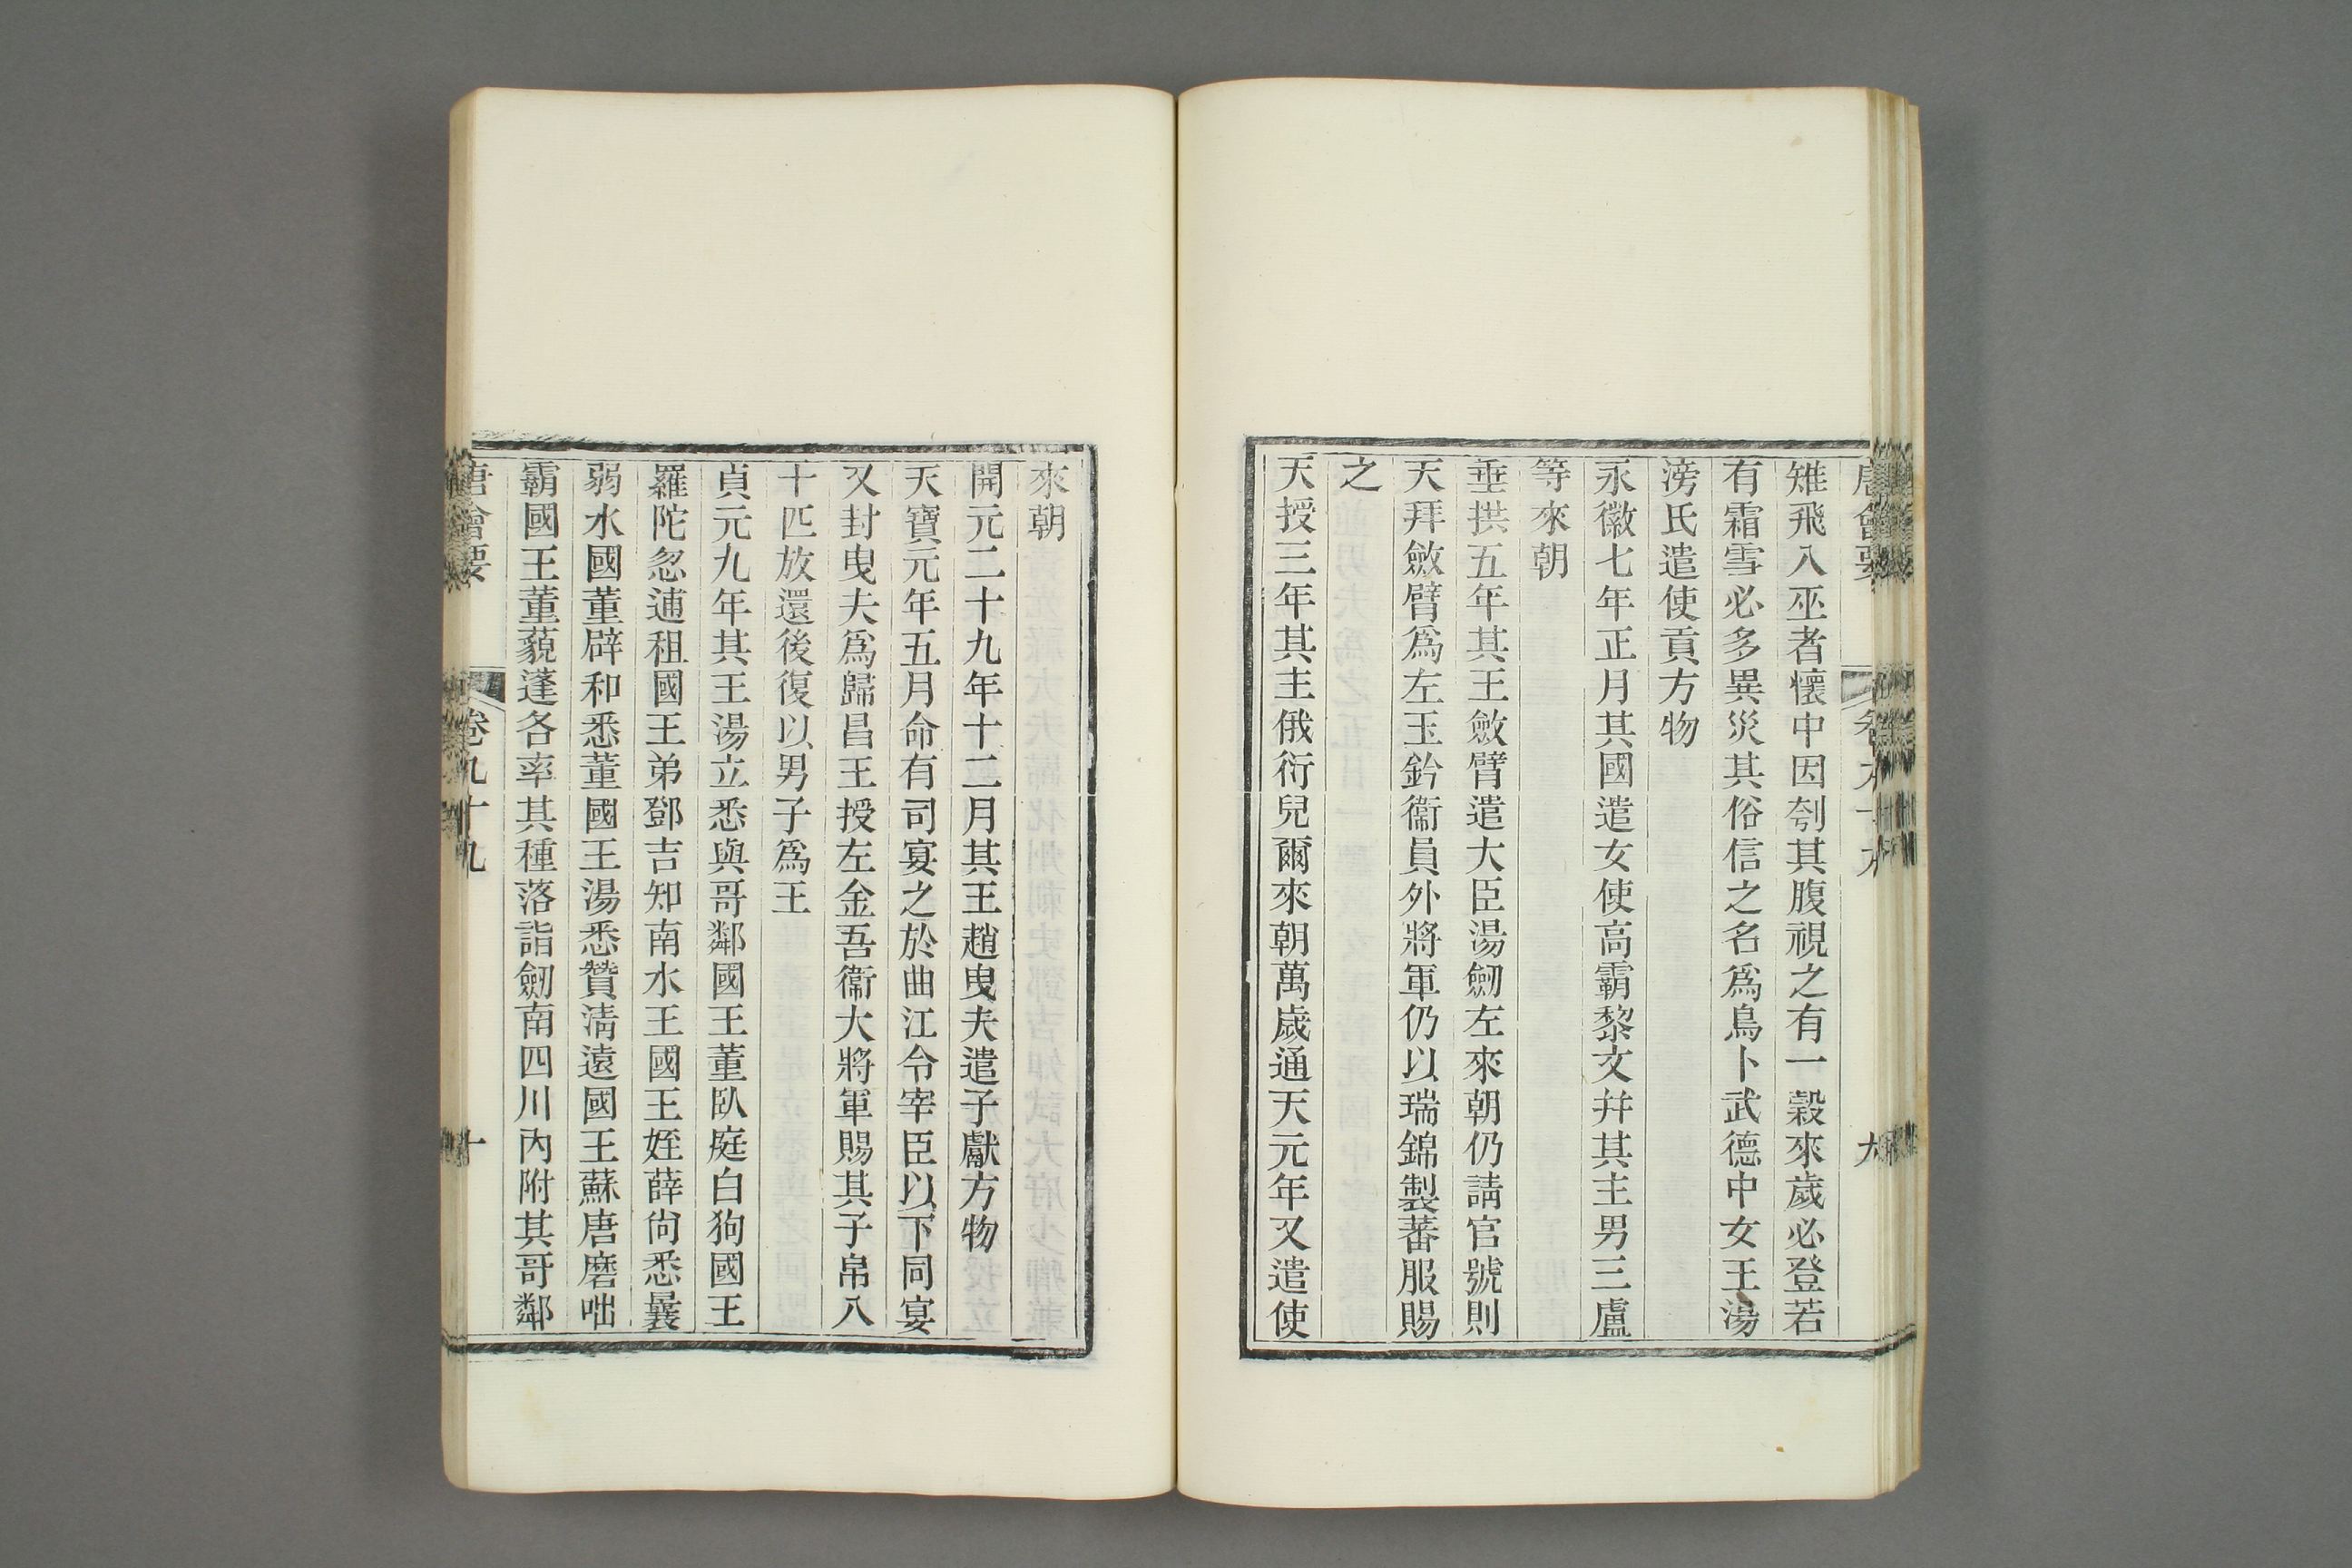 雉飛入巫者懷中因刳其腹視之有一穀來歲必登若
有霜雪必多異災其俗信之名爲鳥卜武德中女王湯
滂氏遣使貢方物
永徽七年正月其國遣女使高霸黎文幷其主男三盧
等來朝
垂拱五年其王斂臂遣大臣湯劒左來朝仍請官號則
天拜斂臂爲左玉鈐衞員外將軍仍以瑞錦製蕃服賜
之
天授三年其主俄衍兒爾來朝萬歲通天元年又遣使
來朝
開元二十九年十二月其王趙曳夫遣子獻方物
天寶元年五月命有司宴之於曲江令宰臣以下同宴
又封曳夫爲歸昌王授左金吾衞大將軍賜其子帛八
十匹放還後復以男子爲王
貞元九年其王湯立悉與哥鄰國王董臥庭白狗國王
羅陀忽逋租國王弟鄧吉知南水王國王姪薛尙悉曩
弱水國董辟和悉董國王湯悉贊淸遠國王蘇唐磨咄
霸國王董藐蓬各率其種落詣劒南四川內附其哥鄰
唐會要 卷九十九 十